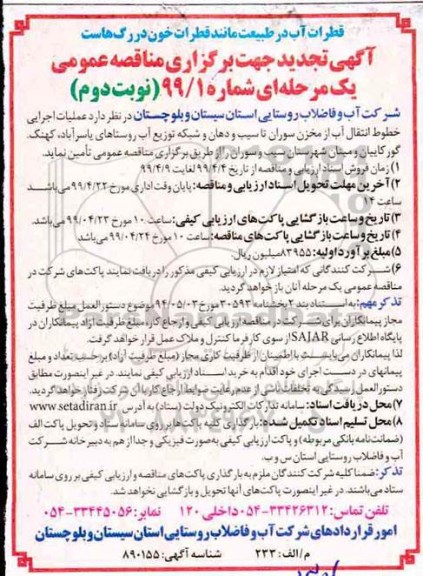 قطرات آب در طبیعت مانند قطرات خون در رگ هاست
آگهی تجدید جهت برگزاری مناقصه عمومی
یک مرحله‌ای شماره ۹۹/۱ (نوبت دوم)
شرکت آب و فاضلاب روستایی استان سیستان و بلوچستان در نظر دارد عملیات اجرایی
خطوط انتقال آب از مخزن سوران تا سیب و دهان و شبکه توزیع آب روستاهای یاسرآباد، کهنک،
گورکاییان و سیتان شهرستان سیب و سوران را از طریق برگزاری مناقصه عمومی تأمین نماید.
۱) زمان فروش اسناد ارزیابی و مناقصه از تاریخ ۹۹/۴/۴ لغایت ۹۹/۴/۹
۲) آخرین مهلت تحویل اسناد ارزیابی و مناقصه: پایان وقت اداری مورخ ۹۹/۴/۲۲ می‌باشد
ساعت ۱۴
۳) تاریخ و ساعت بازگشایی پاکت‌های ارزیابی کیفی: ساعت ۱۰ مورخ ۹۹/۰۴/۲۳ می‌باشد.
۴) تاریخ و ساعت بازگشایی پاکت‌های مناقصه: ساعت ۱۰ مورخ ۹۹/۰۴/۲۴ می‌باشد
۵) مبلغ برآورد اولیه: ۸۳۹۵۵ میلیون ریال.
۶) شرکت کنندگانی که امتیاز لازم در ارزیابی کیفی مذکور را دریافت نمایند پاکت‌های شرکت در
مناقصه عمومی یک مرحله آنان باز خواهد گردید.
تذکر مهم: به استناد بند ۲ بخشنامه ۳۰۵۹۳ مورخ ۹۴/۰۵/۰۳ موضوع دستورالعمل مبلغ ظرفیت
مجاز پیمانکاران برای شرکت در مناقصه ارزیابی کیفی و ارجاع کار، مبلغ ظرفیت آزاد پیمانکاران در
پایگاه اطلاع رسانی SAJAR از سوی کارفرما کنترل و ملاک عمل قرار خواهد گرفت.
لذا پیمانکاران می‌بایست با اطمینان از ظرفیت کاری مجاز (مبلغ ظرفیت آزاد) برحسب تعداد و مبلغ
پیمانهای در دست اجرای خود اقدام به خرید اسناد ارزیابی کیفی نمایند. در غیر اینصورت مطابق
دستورالعمل رسیدگی به تخلفات ناشی از عدم رعایت ضوابط ارجاع کار با آن شرکت رفتار خواهد گردید.
۷) محل دریافت اسناد: سامانه تدارکات الکترونیک دولت (ستاد) به آدرس www.setadiran.ir
۸) محل تسلیم اسناد تکمیل شده: بارگذاری کلیه پاکت‌ها بر روی سامانه ستاد و تحویل پاکت الف
(ضمانت‌نامه بانکی مربوطه) و پاکت ارزیابی کیفی به صورت فیزیکی و جدا از هم به دبیرخانه شرکت
آب و فاضلاب روستایی استان س و ب.
تذکر: ضمنا کلیه شرکت کنندگان ملزم به بارگذاری پاکت‌های مناقصه و ارزیابی کیفی بر روی سامانه
ستاد می‌باشند. در غیر اینصورت پاکت‌های آنها تحویل و بازگشایی نخواهد شد.
تلفن تماس: ۳۳۴۲۶۳۱۲-۰۵۴ داخلی ۱۲۰ نمابر: ۳۳۴۴۵۰۵۶-۰۵۴
امور قراردادهای شرکت آب و فاضلاب روستایی استان سیستان و بلوچستان
م/الف: ۲۳۳ شناسه آگهی: ۸۹۰۱۵۵